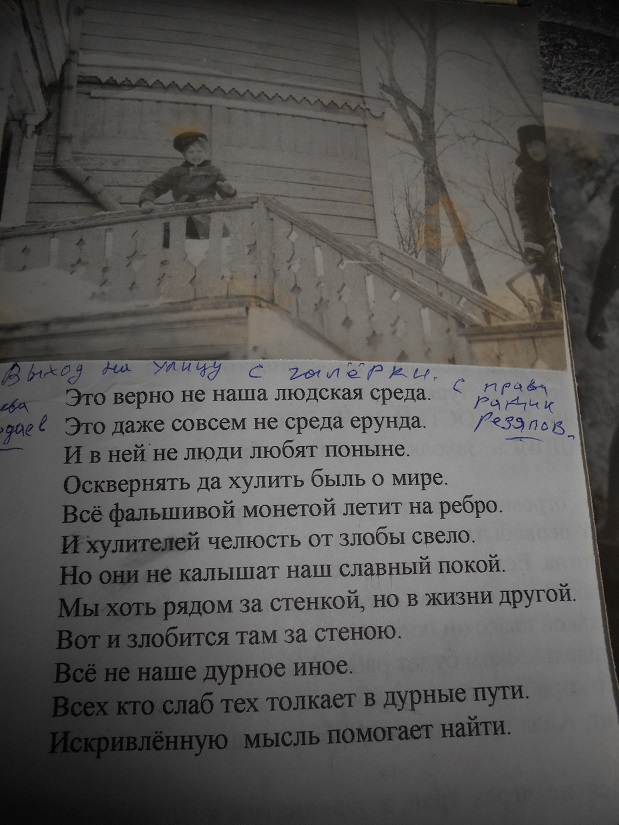 Выход на улицу с галёрки.
с права
Радик
Резяпов.
Это верно не наша людская среда.
Это даже совсем не среда ерунда.
И в ней не люди любят поныне.
Осквернять да хулить быль о мире.
Всё фальшивой монетой летит на ребро.
И хулителей челюсть от злобы свело.
Но они не калышат наш славный покой.
Мы хоть рядом за стенкой, но в жизни другой.
Вот и злобится там за стеною.
Всё не наше дурное иное.
Всех кто слаб тех толкает в дурные пути.
Искривлённую мысль помогает найти.